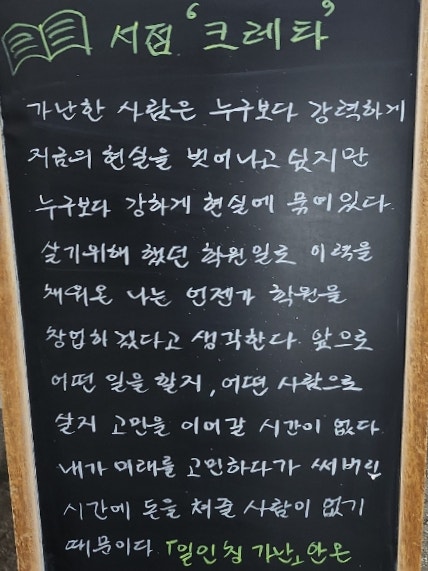 서점 '크레타'
가난한 사람은 누구보다 강력하게
지금의 현실을 벗어나고 싶지만
누구보다 강하게 현실에 묶여있다.
살기위해 했던 학원일로 이력을
채워온 나는 언젠가 학원을
창업하겠다고 생각한다. 앞으로
어떤 일을 할지, 어떤 사람으로
살지 고민을 이어갈 시간이 없다.
내가 미래를 고민하다가 써버린
시간에 돈을 쳐줄 사람이 없기
때문이다. 「일인칭 가난」, 안온